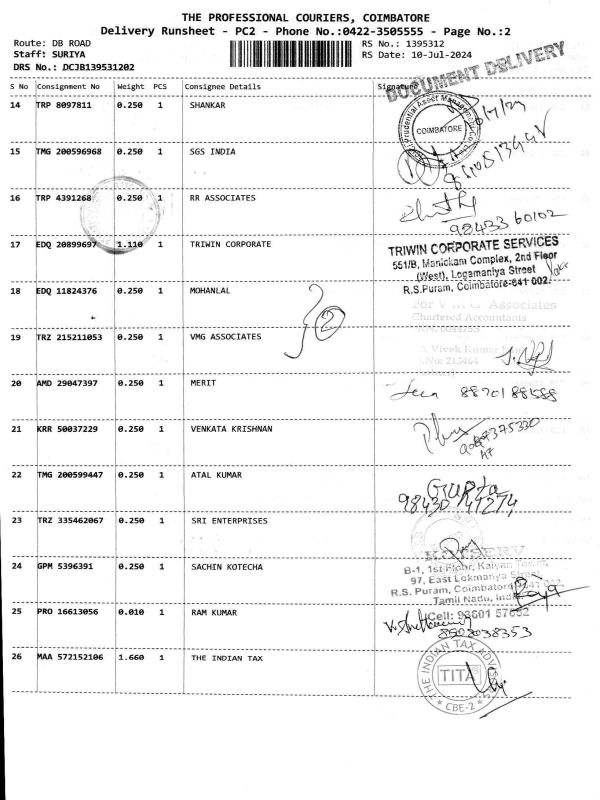 THE PROFESSIONAL COURIERS, COIMBATORE
Delivery Runsheet - PC2 - Phone No.:0422-3505555 - Page No.:2
Route: DB ROAD
RS No.: 1395312
Staff: SURIYA
RS Date: 10-Jul-2024
DRS No.: DCJB139531202
DOCUMENT DELIVERY
S No Consignment No Weight PCS Consignee Details Signature
14 TRP 8097811 0.250 1 SHANKAR
COIMBATORE
15 TMG 200596968 0.250 1 SGS INDIA
16 TRP 4391268 0.250 1 RR ASSOCIATES
98433 60102
17 EDQ 20899697 1.110 1 TRIWIN CORPORATE
TRIWIN CORPORATE SERVICES
551/B, Manickam Complex, 2nd Floor
(West), Logamaniya Street
R.S.Puram, Coimbatore-641 002.
18 EDQ 11824376 0.250 1 MOHANLAL
2
For V M G Associates
Chartered Accountants
19 TRZ 215211053 0.250 1 VMG ASSOCIATES
20 AMD 29047397 0.250 1 MERIT
8870188588
21 KRR 50037229 0.250 1 VENKATA KRISHNAN
22 TMG 200599447 0.250 1 ATAL KUMAR
Gupta
98430 41274
23 TRZ 335462067 0.250 1 SRI ENTERPRISES
24 GPM 5396391 0.250 1 SACHIN KOTECHA
B-1, 1st Floor, Kalyan Tower,
97, East Lokmanya Street,
R.S. Puram, Coimbatore - 641 002.
Tamil Nadu, India
Cell: 98601 57652
25 PRO 16613056 0.010 1 RAM KUMAR
8508038353
26 MAA 572152106 1.660 1 THE INDIAN TAX
THE INDIAN TAX ADVISOR
TITA
CBE-2